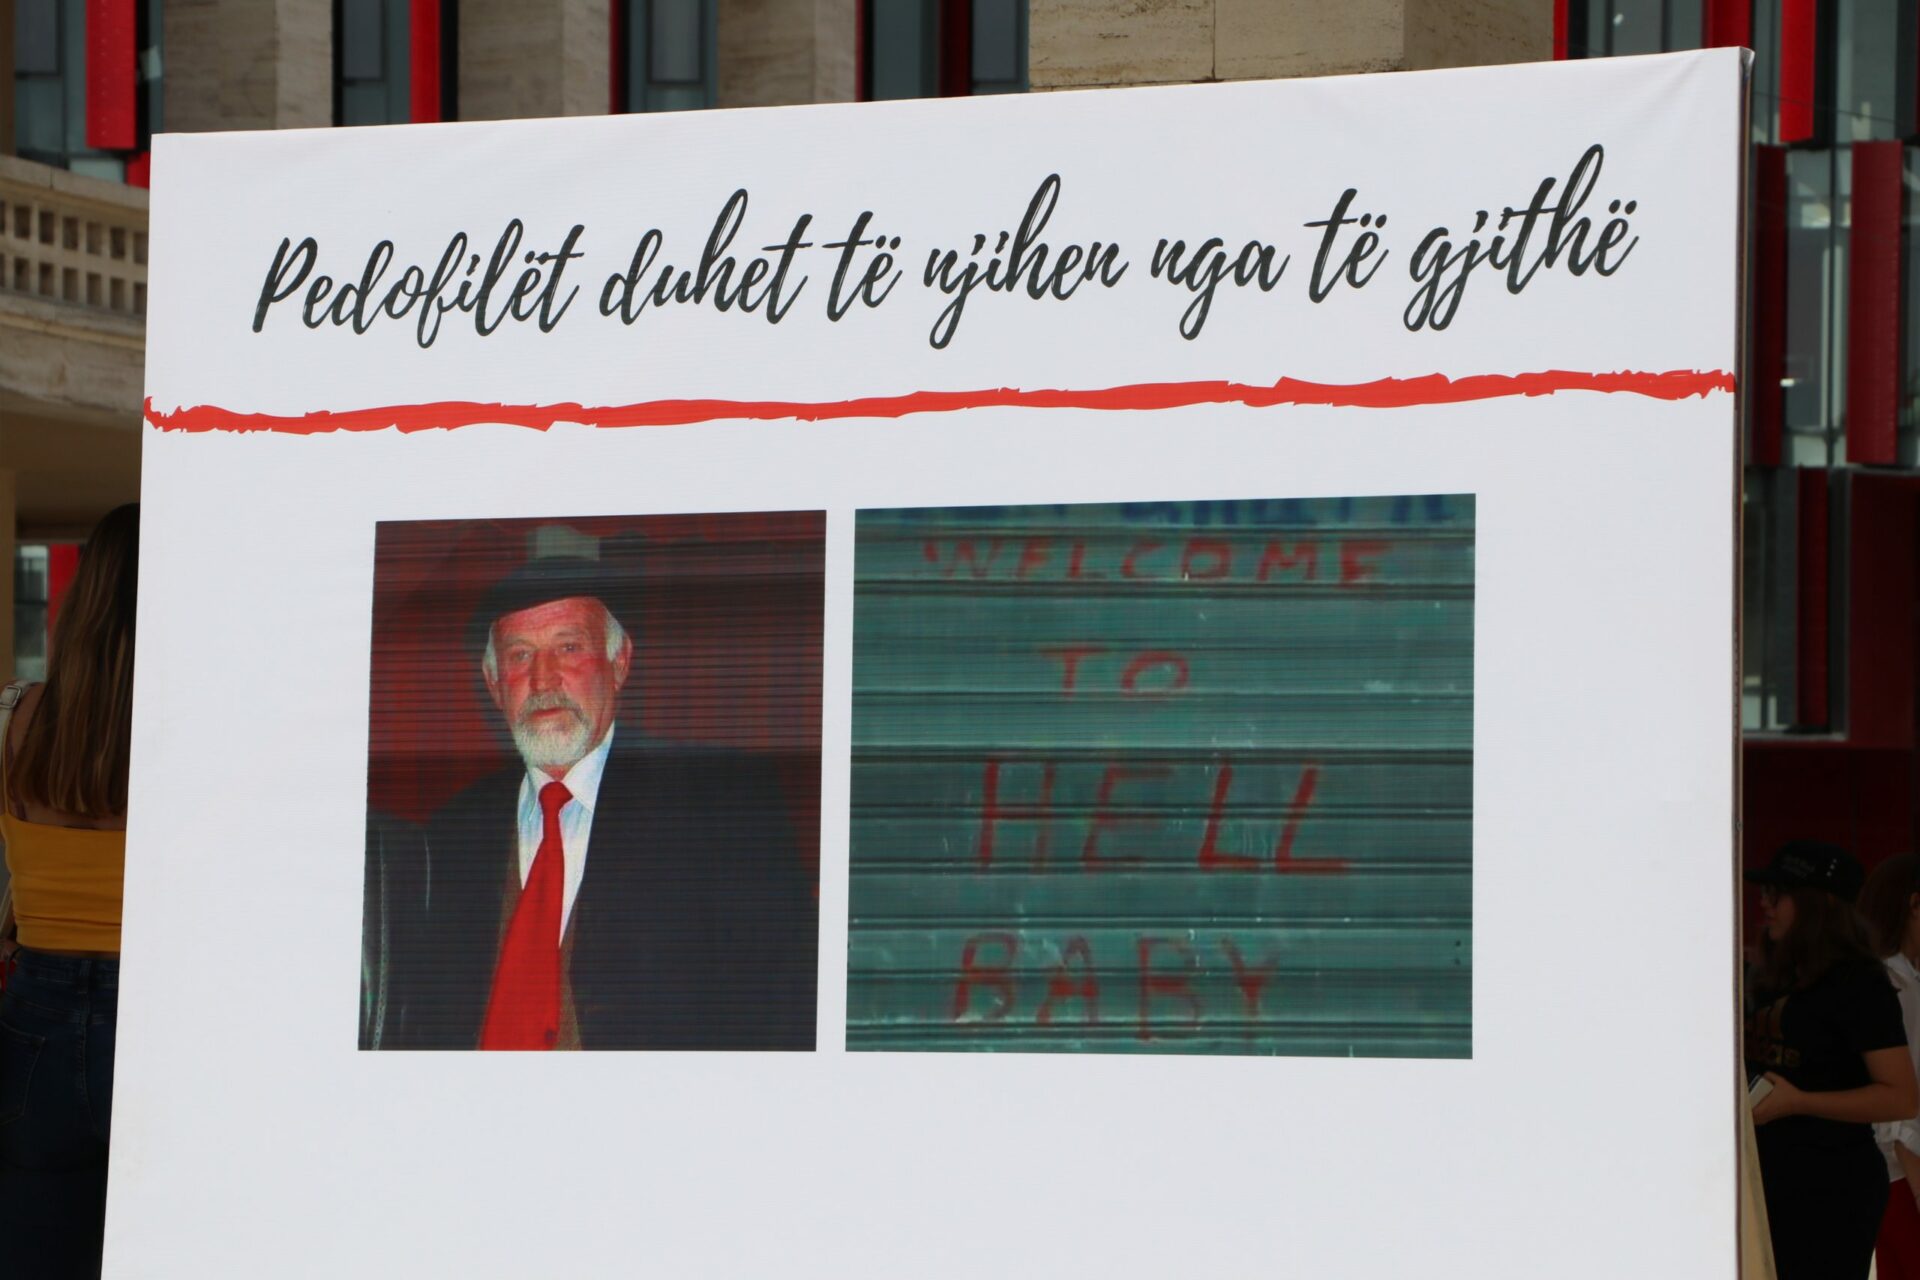 Pedofilët duhet të njihen nga të gjithë
WELCOME
TO
HELL
BABY